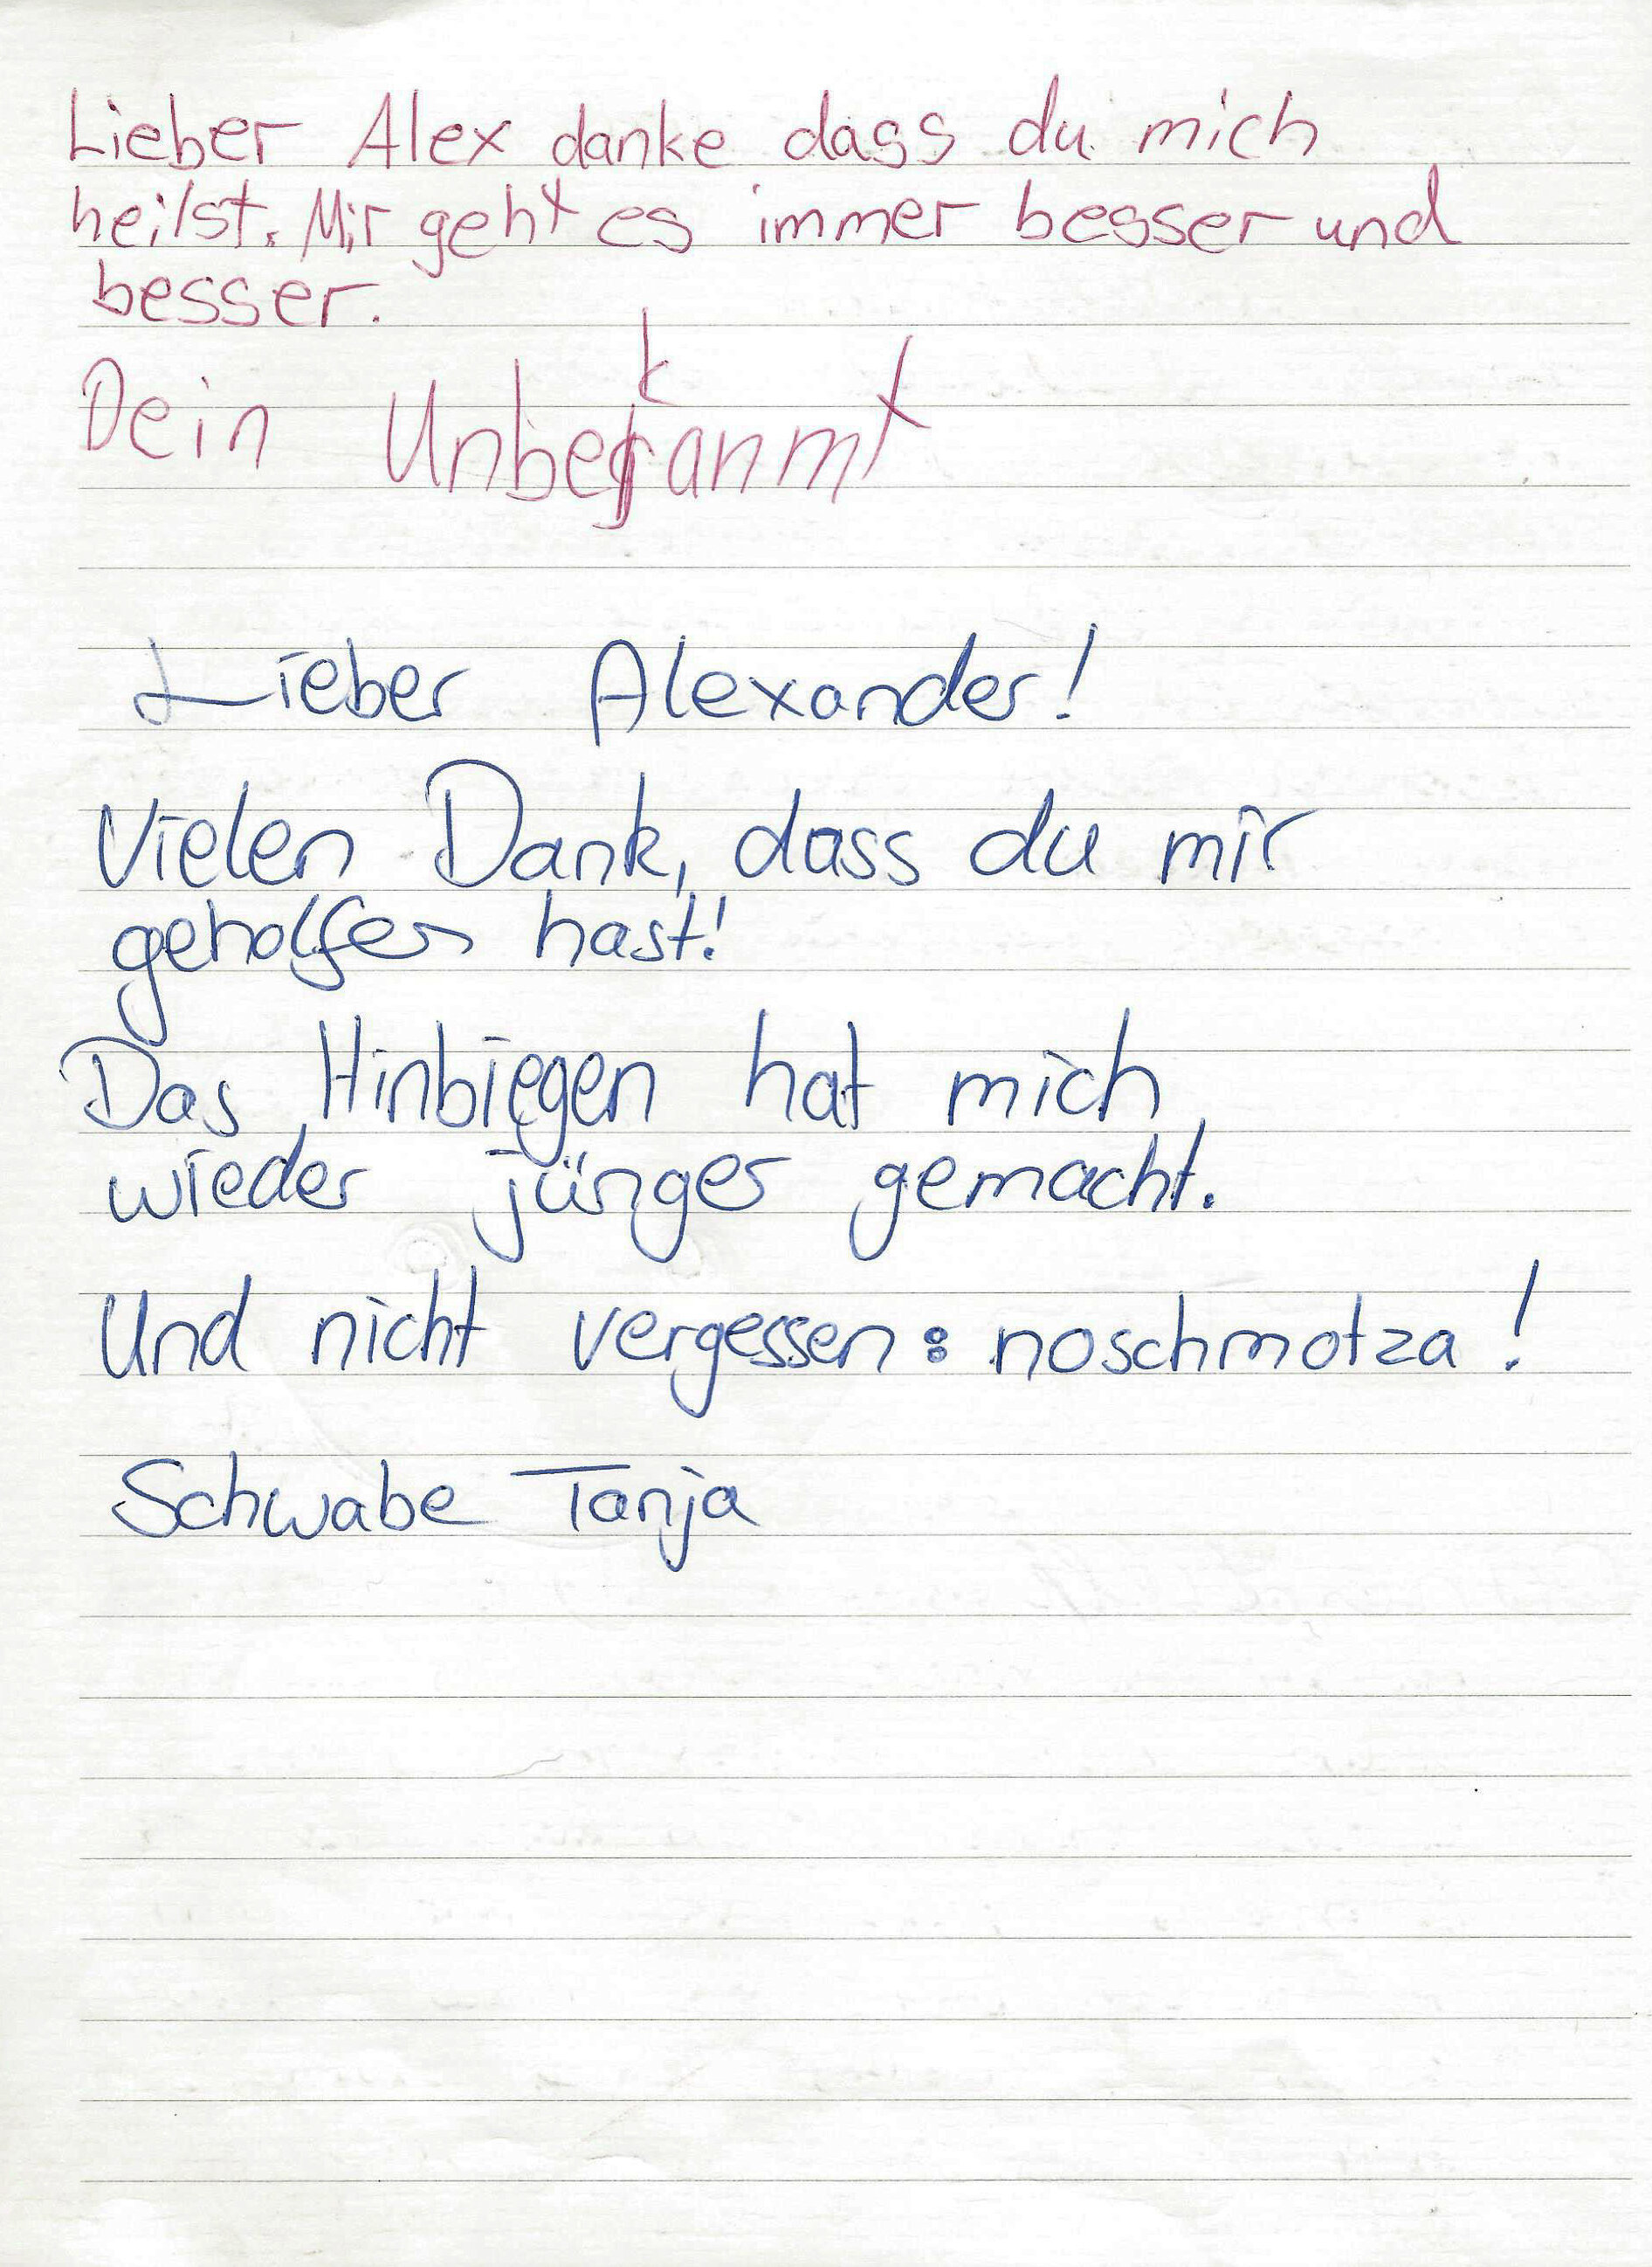 Lieber Alex danke dass du mich
heilst. Mir geht es immer besser und
besser.
Dein Unbekanmt
Lieber Alexander!
Vielen Dank, dass du mir
geholfen hast!
Das Hinbiegen hat mich
wieder jünger gemacht.
Und nicht vergessen: noschmotza!
Schwabe Tanja